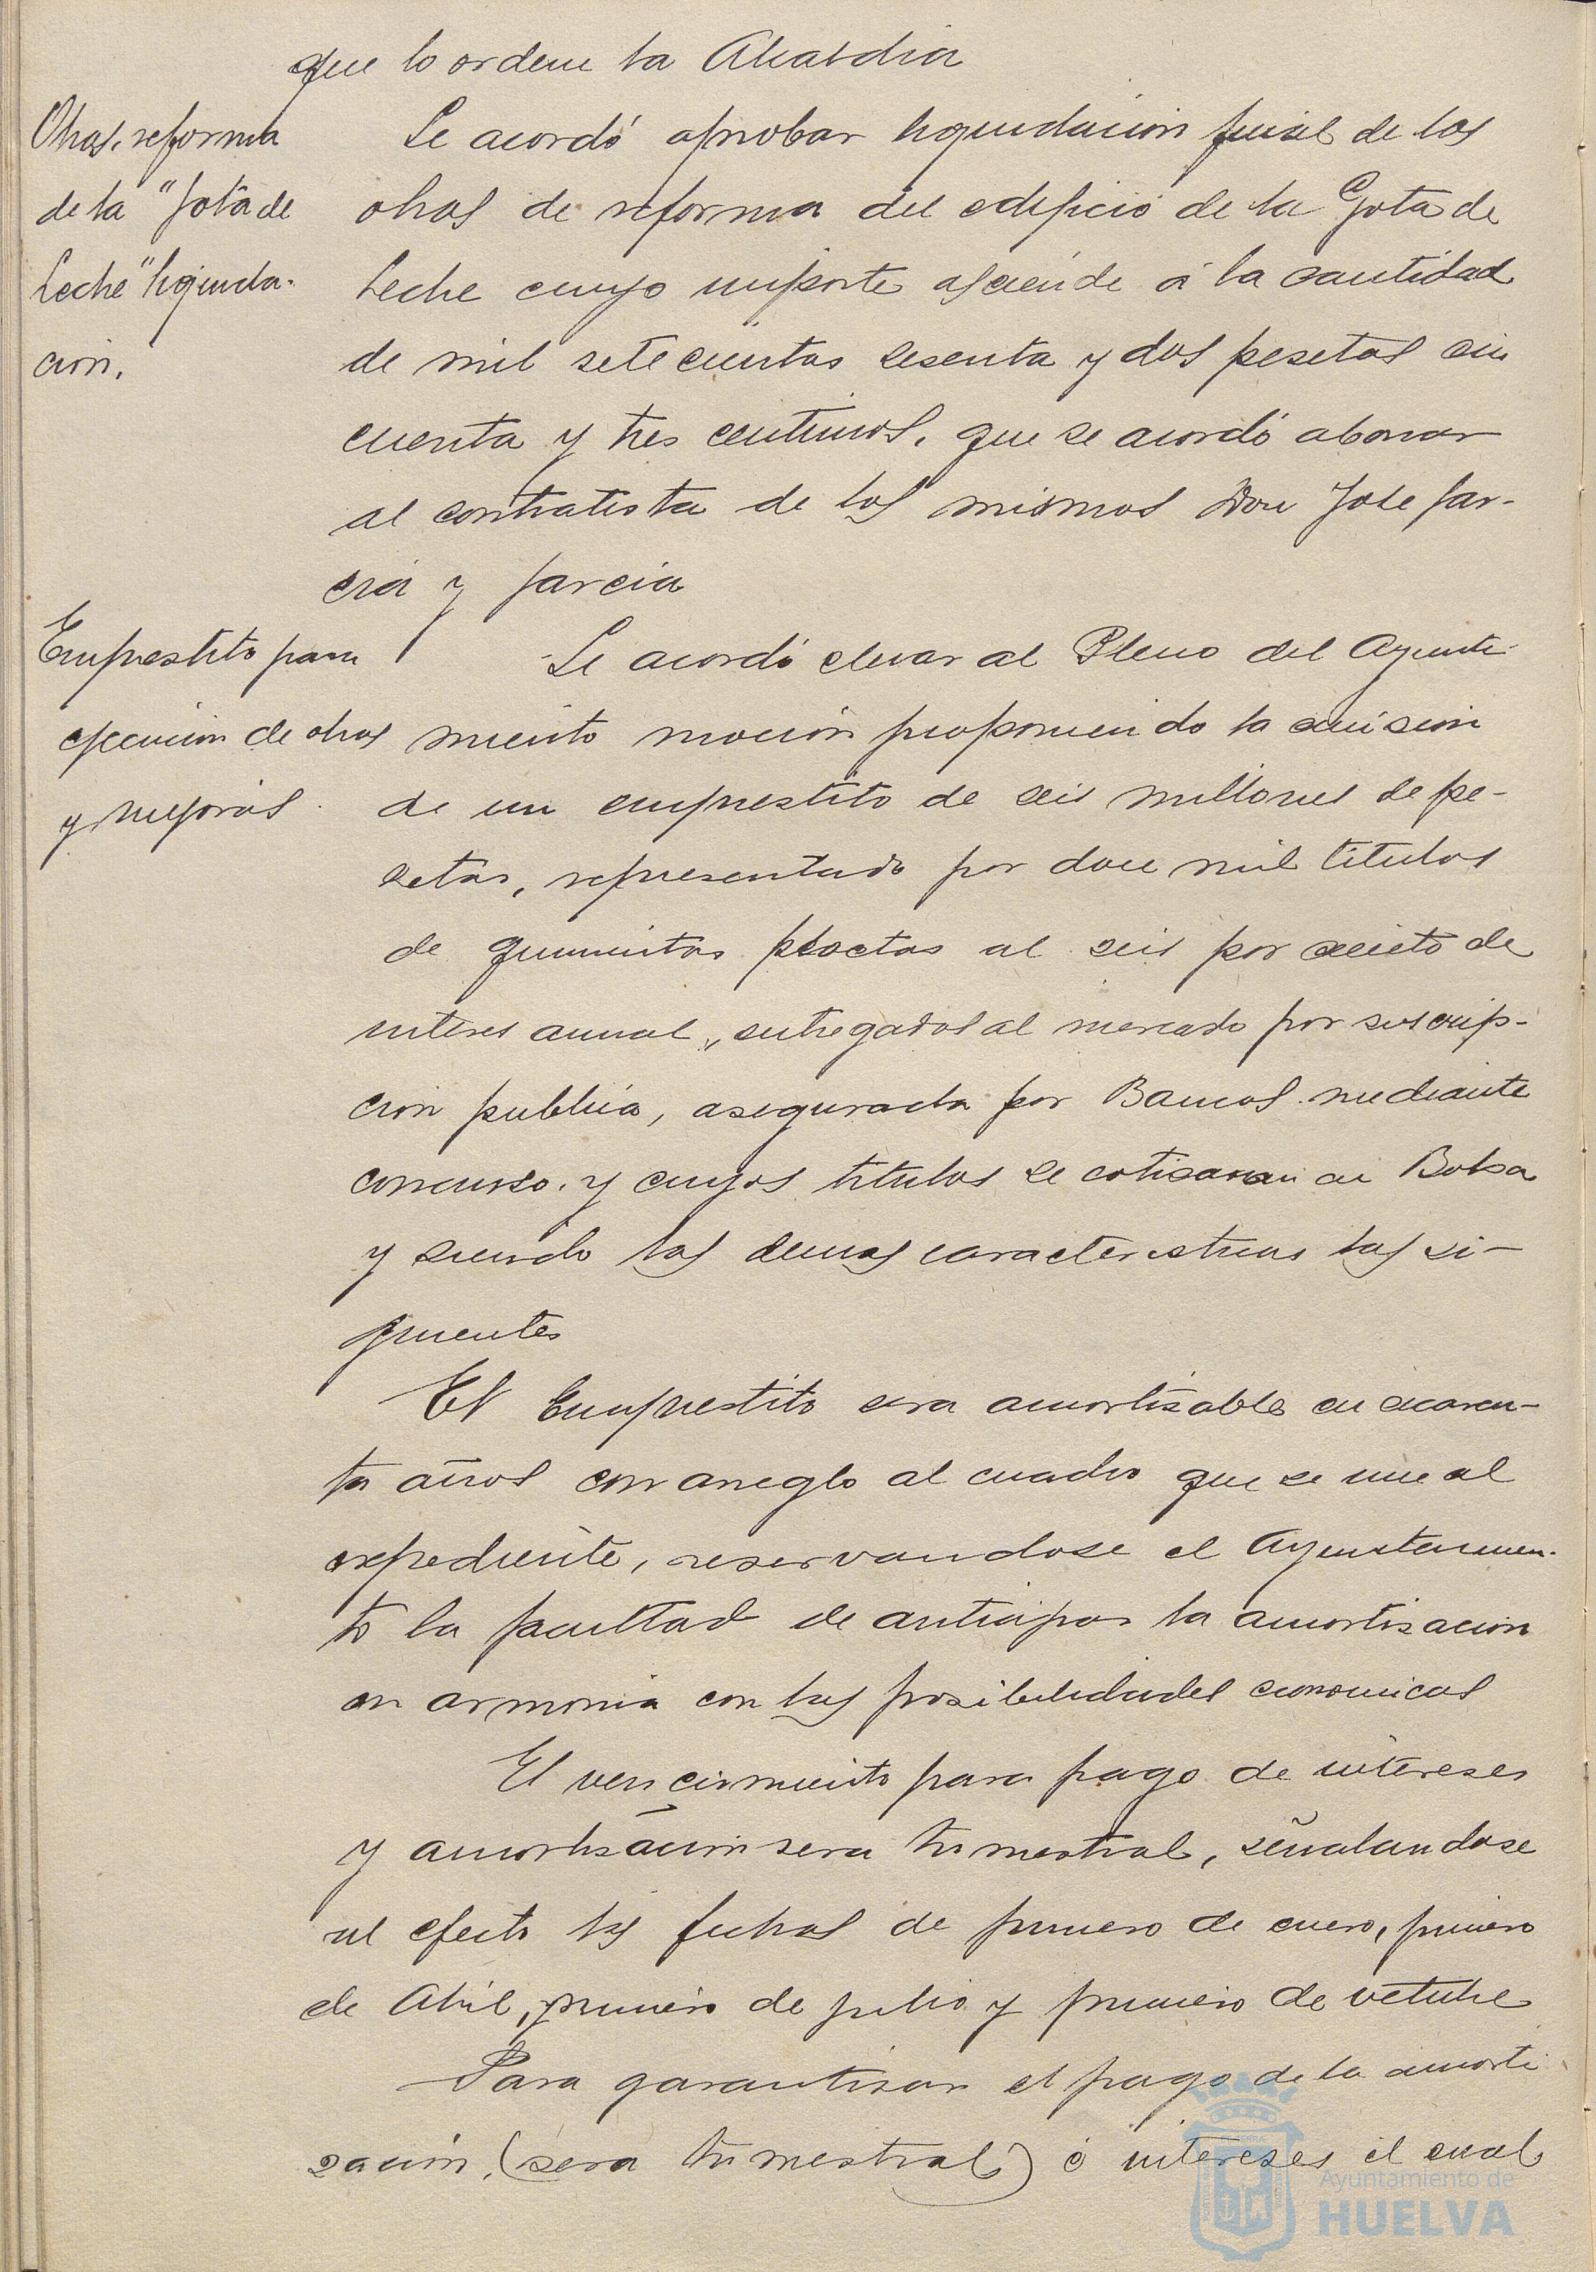 que lo ordene la Alcaldia
Obras, reforma
de la "Gota de
Leche" liquida-
cion.
Se acordó aprobar liquidacion final de las
obras de reforma del edificio de la Gota de
Leche cuyo importe asciende á la cantidad
de mil setecientas sesenta y dos pesetas cin
cuenta y tres centimos, que se acordó abonar
al contratista de las mismas Don Jose Gar-
cia y Garcia
Emprestito para
ejecucion de obras
y mejoras
Se acordó elevar al Pleno del Ayunta-
miento mocion proponiendo la emision
de un emprestito de seis millones de pe-
setas, representado por doce mil titulos
de quinientas pesetas al seis por ciento de
interes anual, entregados al mercado por suscrip-
cion publica, asegurada por Bancos mediante
concurso, y cuyos titulos se cotisaran en Bolsa
y siendo las demas caracteristicas las si-
guientes
El Emprestito sera amortisable en cuaren-
ta años con arreglo al cuadro que se une al
expediente, reservandose el Ayuntamien-
to la facultad de anticipar la amortisacion
en armonia con las posibilidades economicas
El vencimiento para pago de intereses
y amortisacion sera trimestral, señalandose
al efecto las fechas de primero de enero, primero
de Abril, primero de julio y primero de octubre
Para garantisar el pago de la amorti
zacion, (sera trimestral) é intereses el cual
Ayuntamiento de
HUELVA